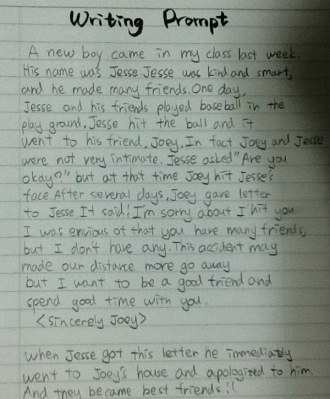 Writing Prompt
A new boy came in my class last week.
His name was Jesse Jesse was kind and smart,
and he made many friends. One day,
Jesse and his friends played baseball in the
play ground. Jesse hit the ball and it
went to his friend, Joey. In fact Joey and Jesse
were not very intimate. Jesse asked "Are you
okay?" but at that time Joey hit Jesse's
face. After several days, Joey gave letter
to Jesse It said! I'm sorry about I hit you
I was envious of that you have many friends,
but I don't have any. This accident may
made our distance more go away
but I want to be a good friend and
spend good time with you.
<Sincerely Joey>
When Jesse got this letter he immediately
went to Joey's house and apologized to him.
And they became best friends!!